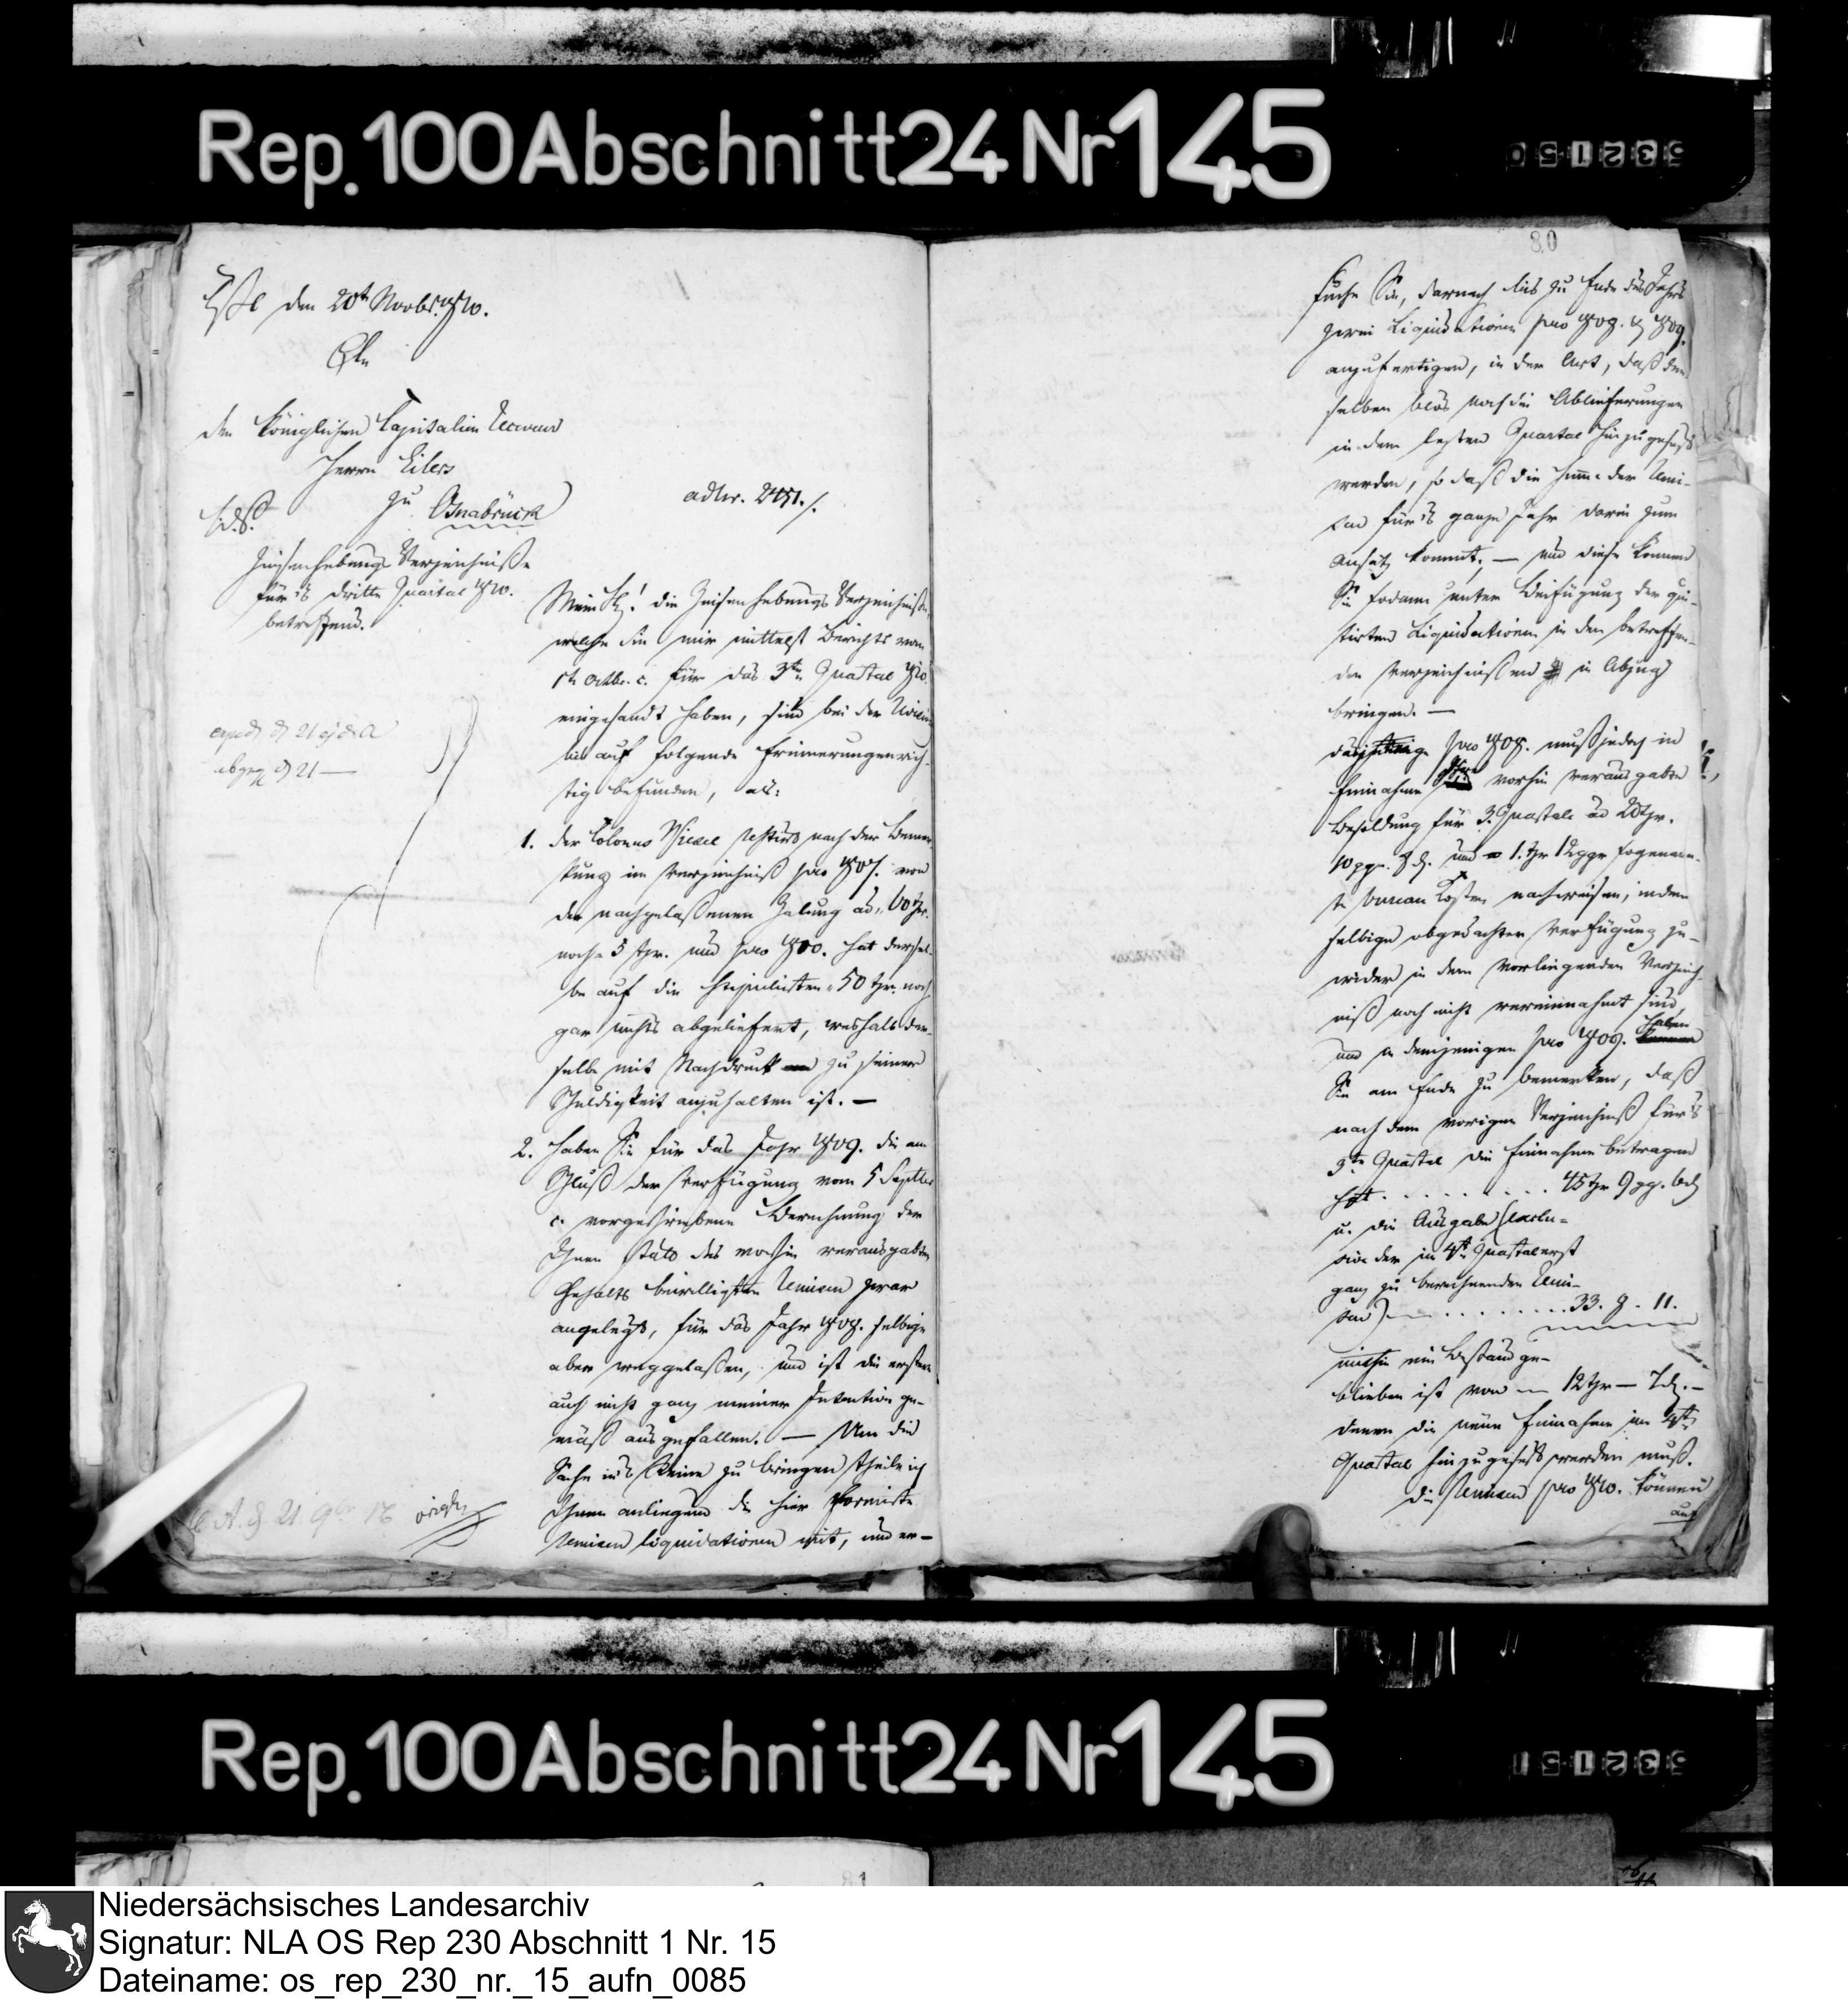 Rep. 100 Abschnitt 24 Nr 145
den 20t Novbr. 1810.
An
den Königlichen Capitalien Receveur
Herrn Eilers
zu Osnabrück
adhr. 2451./.
Zinsenhebungs Verzeichniße
für's dritte Quartal 1810.
betreffend.
Mein Hr! die Zinsenhebungs Verzeichniße,
welche Sie mir mittelst Berichts vom
1t Octbr. c. für das 3te Quartal 1810.
eingesandt haben, sind bei der Revision
bis auf folgende Erinnerungen rich-
tig befunden, als:
1. der Colonus restirt nach der Bemer-
kung im Verzeichniß pro 1807. von
der nachgelaßenen Zalung ad 60 thr.
noch 5 thr. und pro 1810. hat dersel-
be auf die stipulirten 50 thr. noch
gar nichts abgeliefert, weshalb der-
selbe mit Nachdruck zu seiner
Schuldigkeit anzuhalten ist. —
2. haben Sie für das Jahr 1809. die am
Schluß der Verfügung vom 5 Septbr
c. vorgeschriebene Berechnung der
Ihnen statt des vorhin verausgabten
Gehalts bewilligten Remisen zwar
angelegt, für das Jahr 1808. selbige
aber weggelaßen, und ist die erstere
auch nicht ganz meiner Intention ge-
mäß ausgefallen. — Um die
Sache in's Reine zu bringen theile ich
Ihnen anliegend die hier formirte
Remisen liquidationen mit, und er-
expedi d 21
abgeg d 21 —
80
suche Sie, darnach bis zu Ende des Jahrs
zwei Liquidationen pro 1808. & 1809.
anzufertigen, in der Art, daß den-
selben blos noch die Ablieferungen
in dem lezten Quartal hinzugesezt
werden, so daß die Summe der Remi-
sen für's ganze Jahr darin zum
Ansatz kommt; — und diese können
Sie sodann unter Beifügung der qui-
tirten Liquidationen in den betreffen-
den Verzeichnißen in Abzug
bringen. —
dasjenige pro 1808. muß jedoch in
Einnahme Ihre vorhin verausgabte
Besoldung für 3. Quartale ad 20 thr.
10 ggr. 8 d. und 1. thr 12 ggr sogenan-
te Bureau Kosten nachweisen, indem
selbige obgedachter Verfügung zu-
wider in dem vorliegenden Verzeich-
niß noch nicht vereinnahmt sind,
und in demjenigen pro 1809. haben
Sie am Ende zu bemerken, daß
nach dem vorigen Verzeichniß für's
3te Quartal die Einnahme betragen
hat . . . . . . . . . 45 thr 9 gg. 6 d
u. die Ausgabe (exclu-
sive der im 4t Quartal erst
ganz zu berechnenden Remi-
sen) . . . . . . . . . 33. 9. 11.
mithin ein Bestand ge-
blieben ist von — 12 thr — 7 d. —
denen die neue Einnahme im 4ten
Quartal hinzugesezt werden muß.
Die Remisen pro 1810. können
auch
Rep. 100 Abschnitt 24 Nr 145
81
Niedersächsisches Landesarchiv
Signatur: NLA OS Rep 230 Abschnitt 1 Nr. 15
Dateiname: os_rep_230_nr._15_aufn_0085